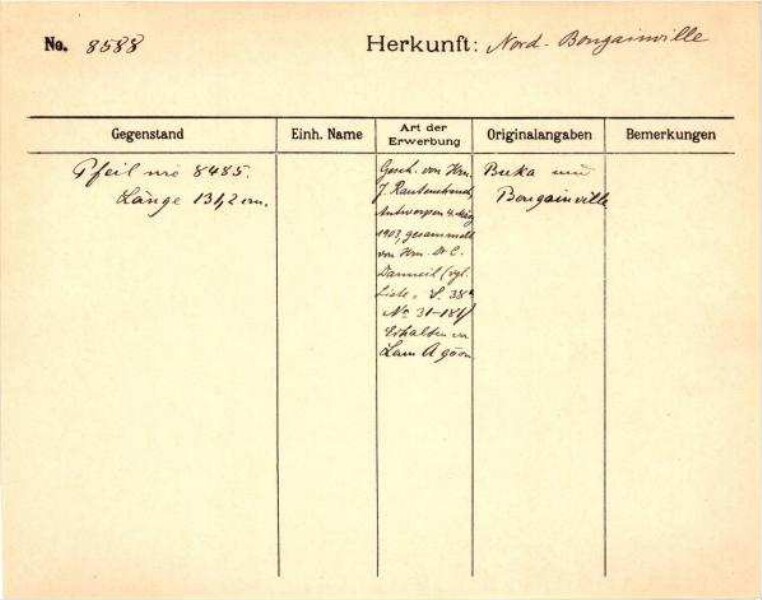 No. 8588 Herkunft: Nord-Bougainville
Gegenstand Einh. Name Art der Erwerbung Originalangaben Bemerkungen
Pfeil wie 8485.
Länge 131,2 cm.
Gesch. von Hrn.
J. Rautenstrauch,
Antwerpen 4. März
1903, gesammelt
von Hrn. Dr. C.
Danneil (vgl.
Liste, S. 38
No 31-181)
Erhalten
Lam
Buka und
Bougainville